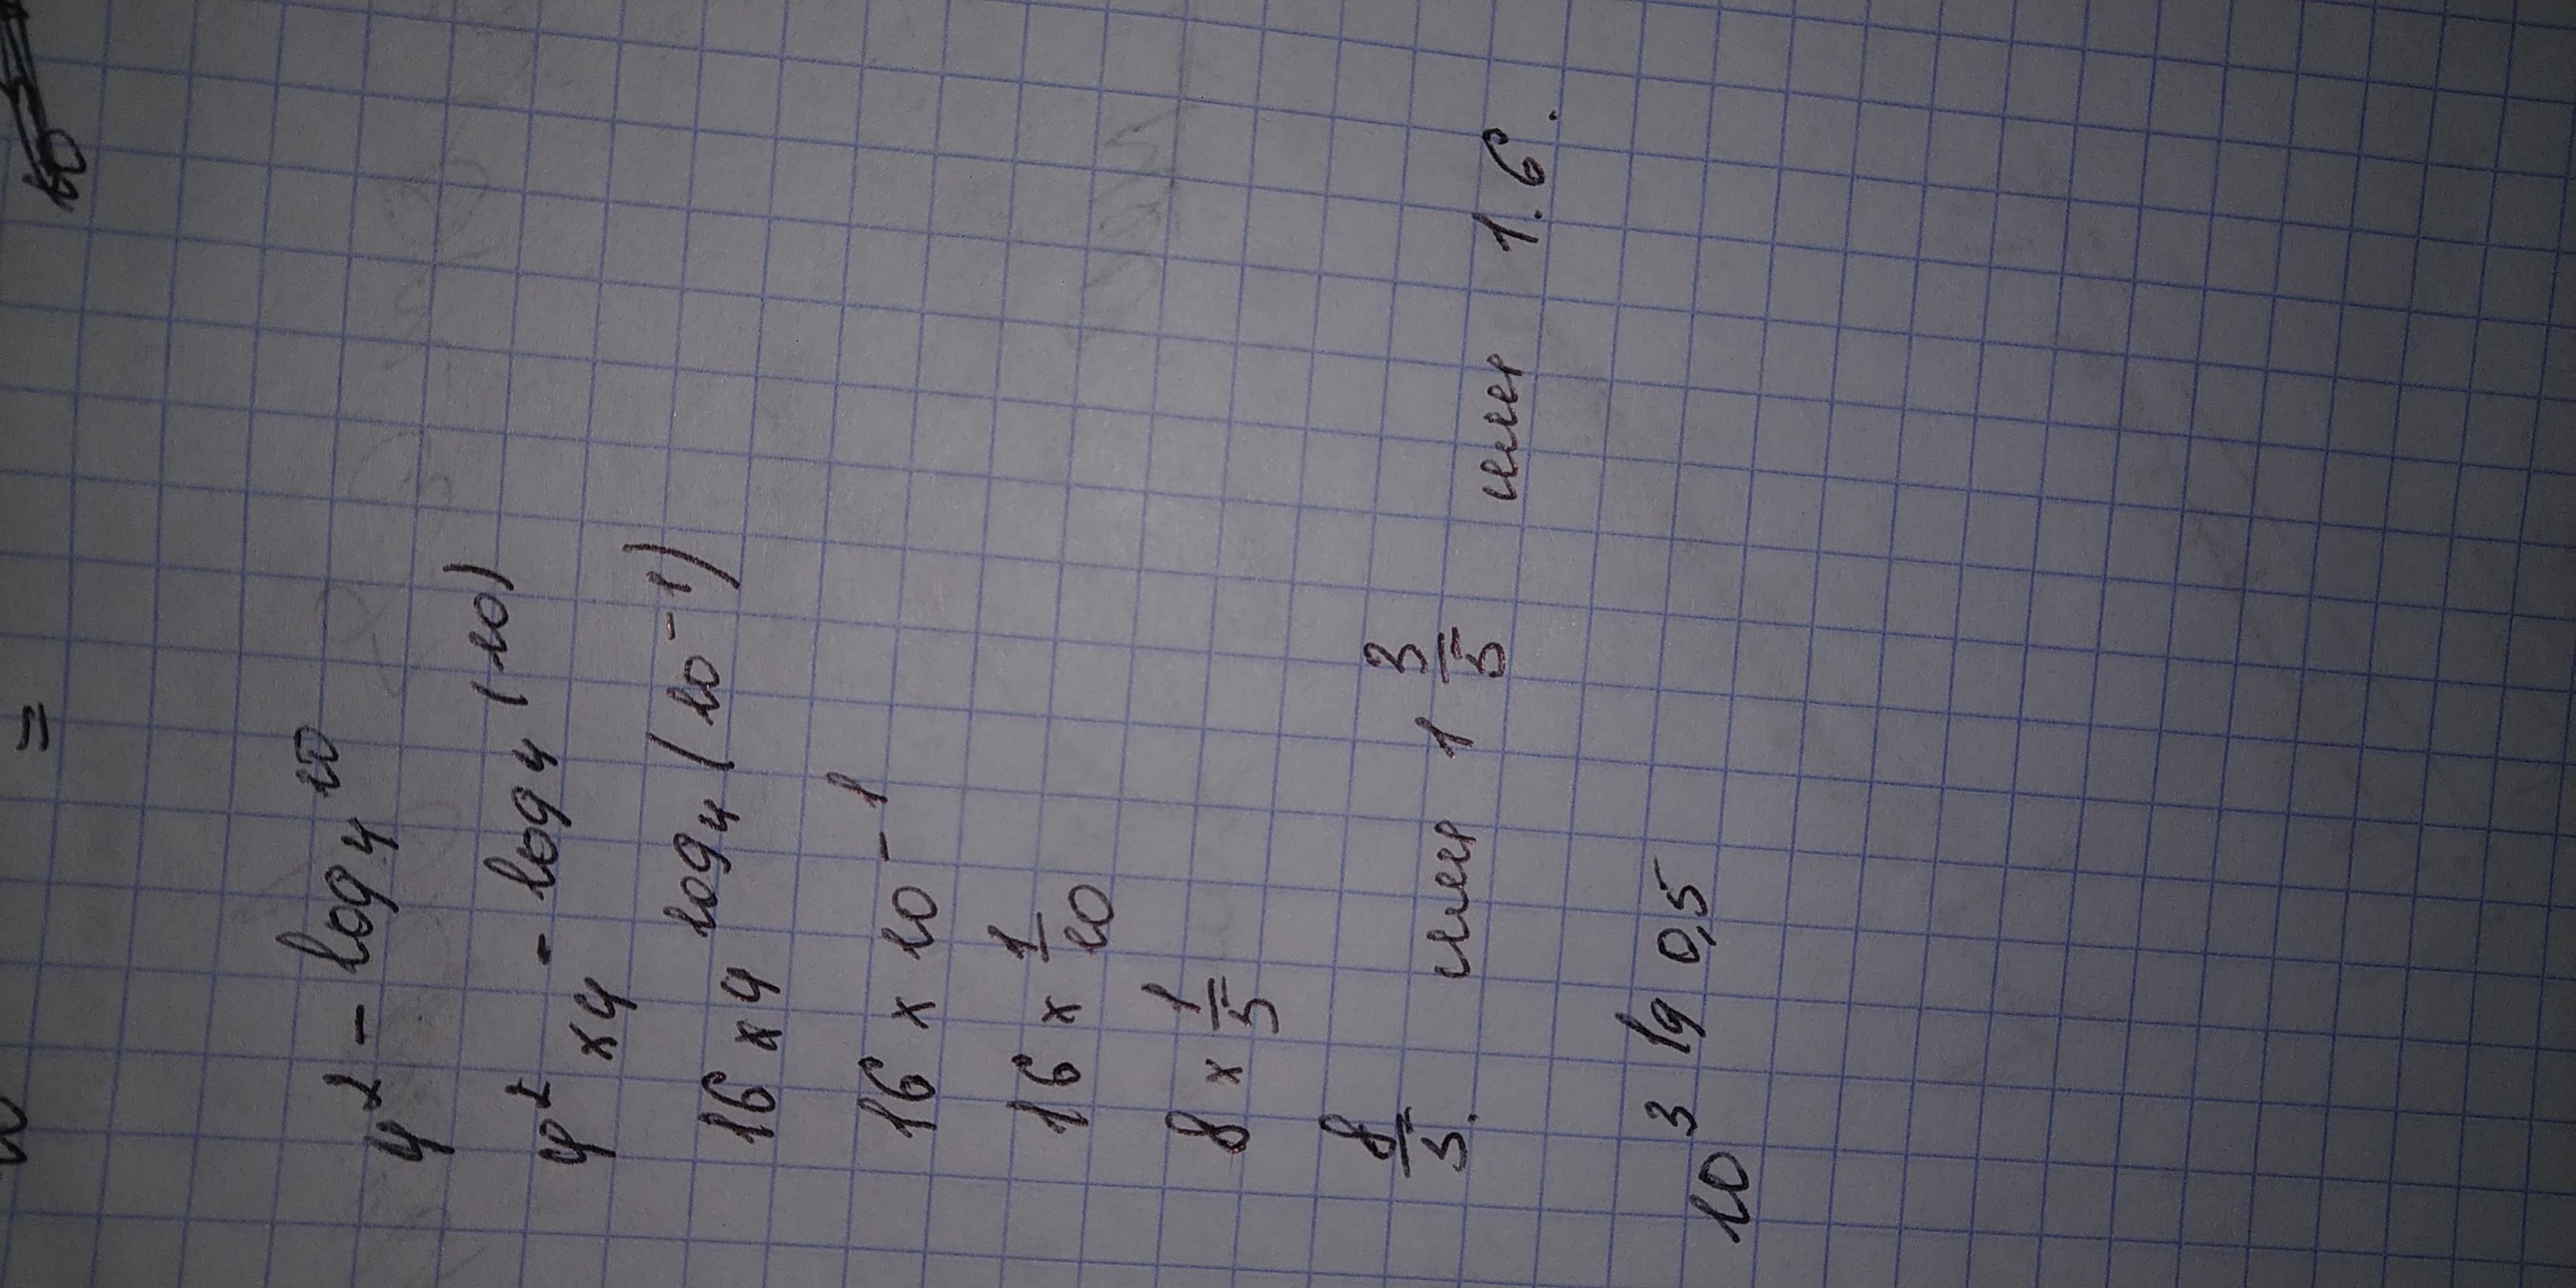 =
4² - log₄ 10
4² × 4 - log₄ (10)
16 × 4 log₄ (10⁻¹)
16 × 10⁻¹
16 × 1/10
8 × 1/5
8/5. или 1 3/5 или 1.6.
10 3 lg 0,5